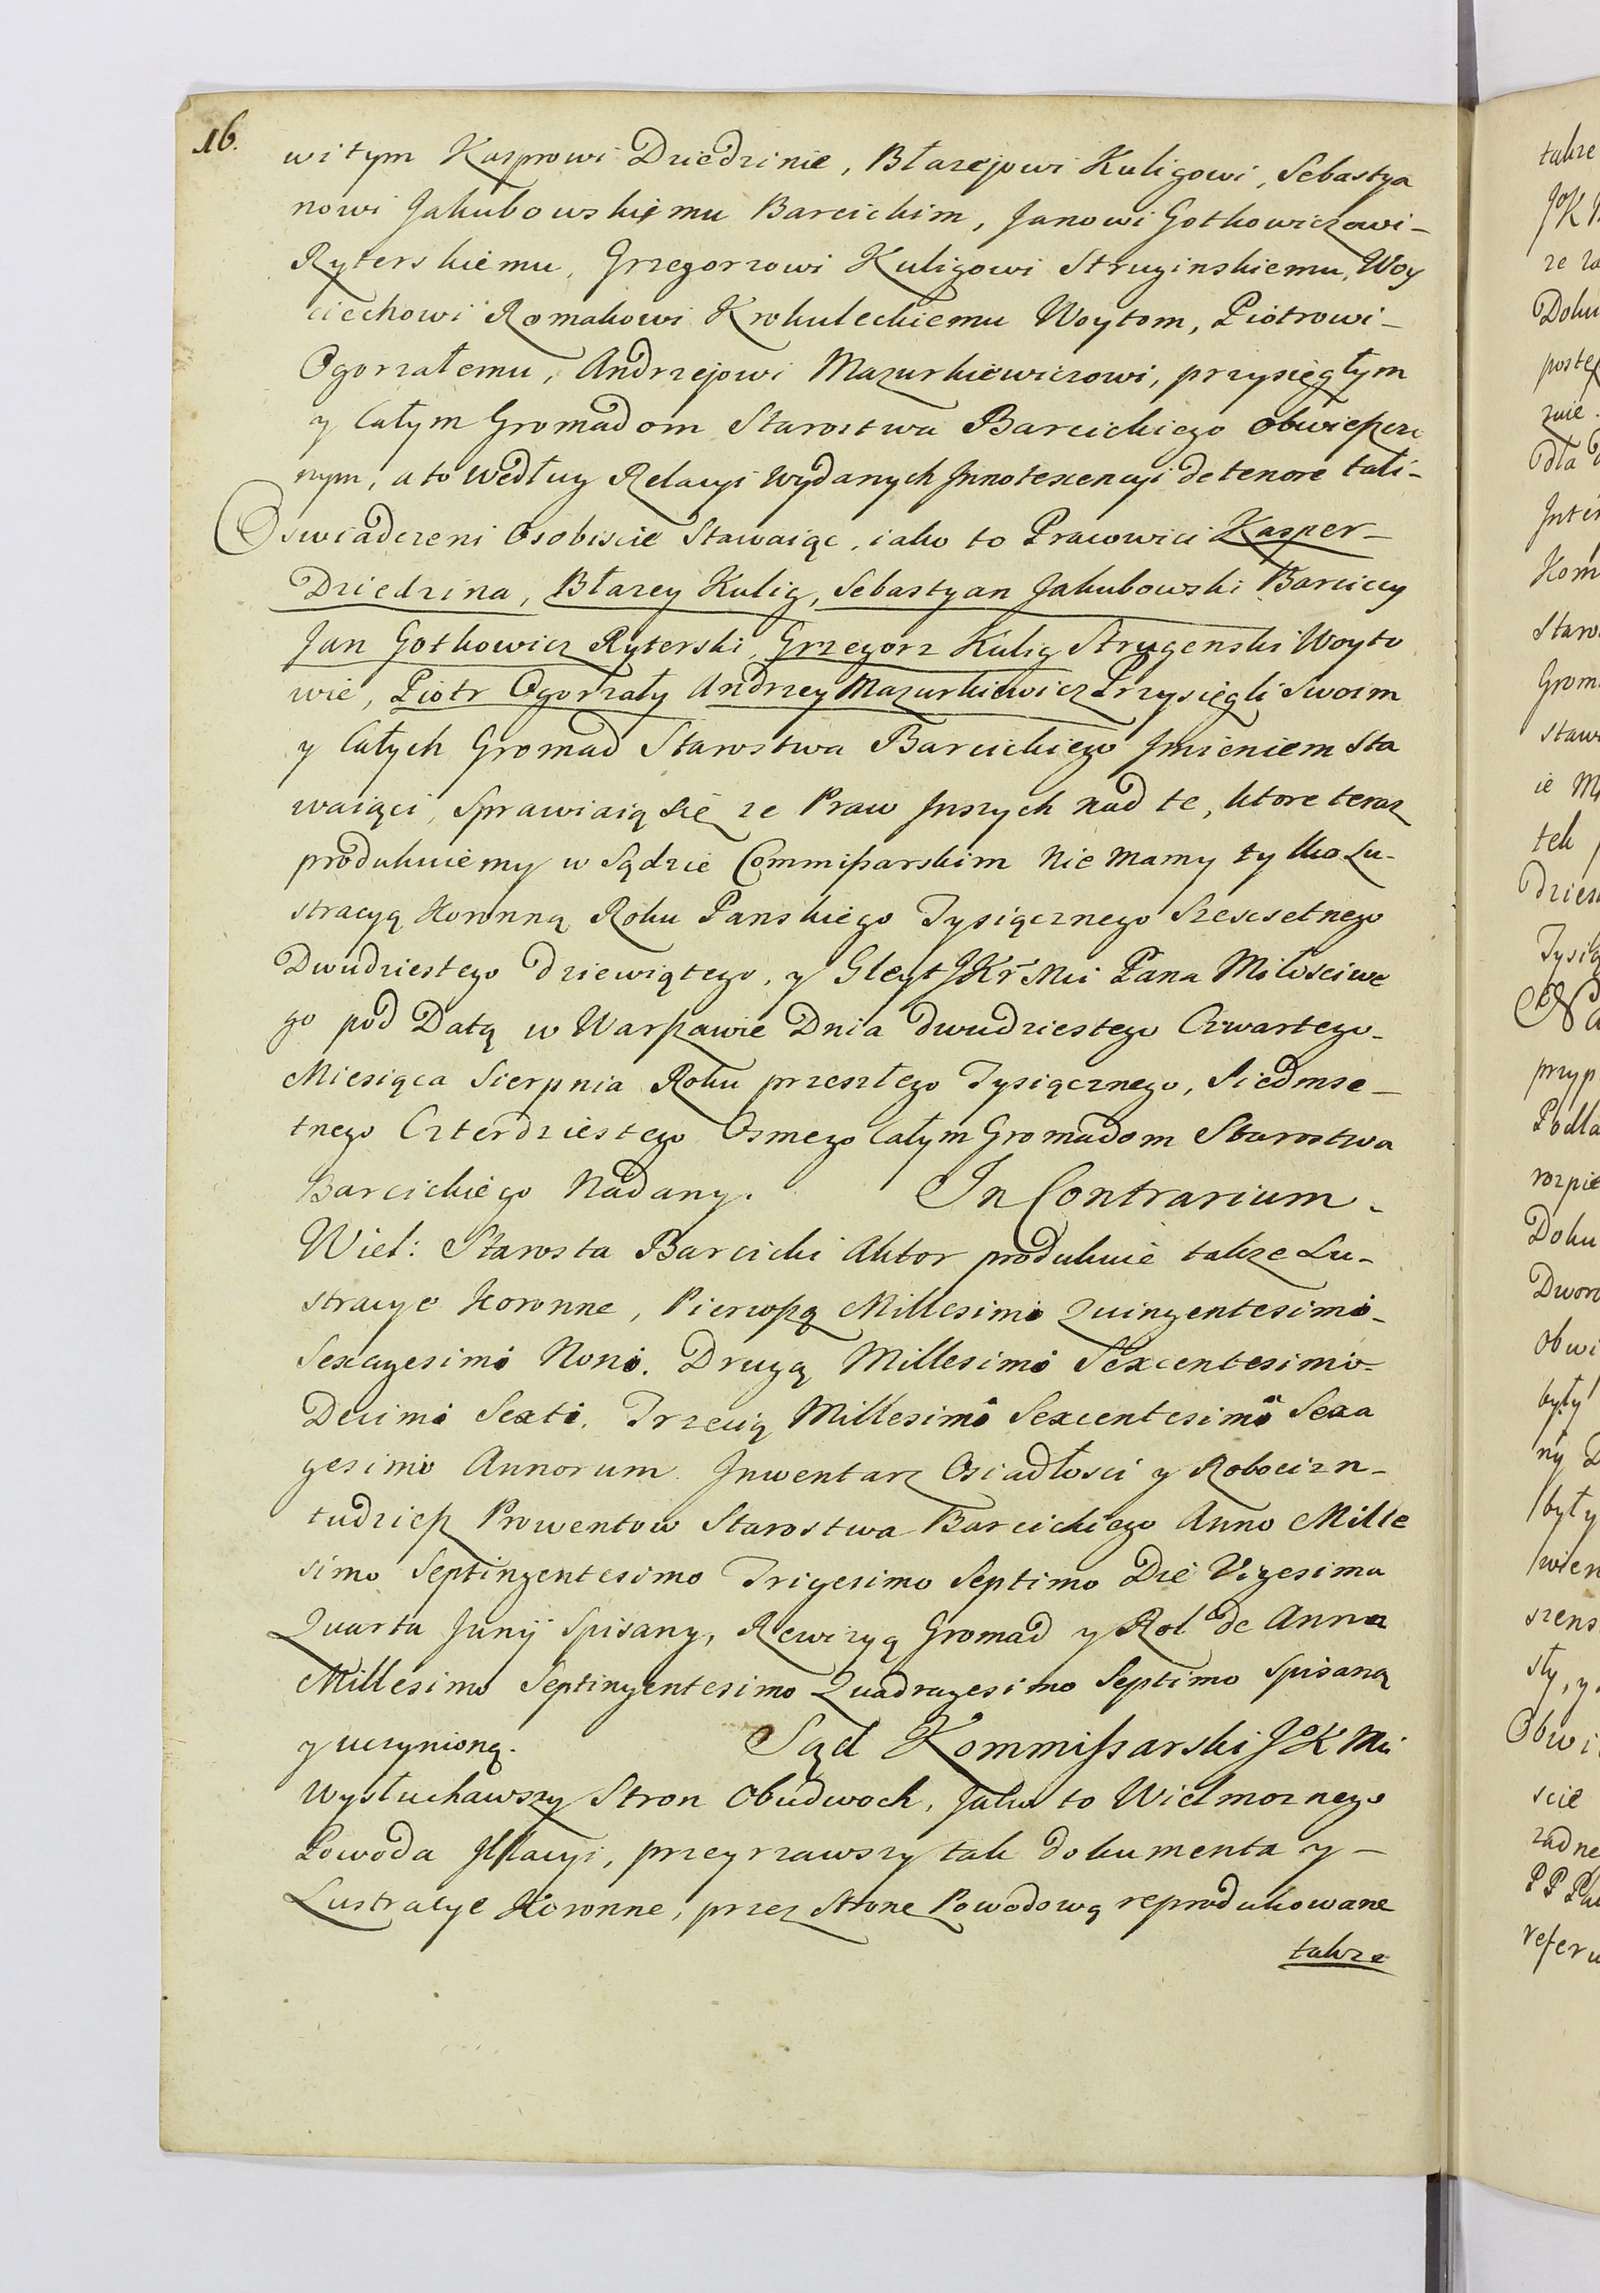 16.
witym Kasprowi Dziedzinie, Błazejowi Kuligowi, Sebastya
nowi Jakubowskiemu Barcickim, Janowi Gotkowiczowi-
Ryterskiemu, Grzegorzowi Kuligowi Struginskiemu, Woy
ciechowi Romakowi Krokuleckiemu Woytom, Piotrowi-
Ogorzałemu, Andrzejowi Mazurkiewiczowi, przysięgłym
y Całym Gromadom Starostwa Barcickiego obwieszczo
nym, a to według Relacyi wydanych Innotexencyi de tenore tali-
Oswiadczeni Osobiscie Stawaiąc, iako to Pracowici Kasper-
Dziedzina, Błazey Kulig, Sebastyan Jakubowski Barciccy
Jan Gotkowicz Ryterski, Grzegorz Kulig Strugenski Woyto
wie, Piotr Ogorzały Andrzey Mazurkiewicz Przysięgli Swoim
y Całych Gromad Starostwa Barcickiego Jmieniem sta
waiący, Sprawiaią się ze Praw Jnszych nad te, ktore teraz
produkuiemy w Sądzie Commissarskim nie mamy tylko Lu-
stracyą Koronną Roku Panskiego Tysiącznego Szescsetnego
Dwudziestego dziewiątego, y Gleyt JKr Mci Pana Miłosciwe
go pod Datą w Warszawie Dnia dwudziestego Czwartego-
Miesiąca Sierpnia Roku przeszłego Tysiącznego, Siedmse-
tnego Czterdziestego Osmego Całym Gromadom Starostwa
Barcickiego Nadany. In Contrarium.
Wiel: Starosta Barcicki Aktor produkuie takze Lu-
stracye Koronne, Pierwszą Millesimi Quingentesimi-
Sexagesimi Noni. Drugą Millesimi Sexcentesimi-
Decimi Sexti, Trzecią Millesimo Sexcentesimo Sexa
gesimo Annorum. Jnwentarz Osiadłosci y Robocizn-
tudziesz Prowentow Starostwa Barcickiego Anno Mille
simo Septingentesimo Trigesimo Septimo Die Vigesima
Quarta Junij Spisany, Rewizyą Gromad y Rol de Anno
Millesimo Septingentesimo Quadragesimo Septimo Spisaną
y uczynioną. Sąd Kommissarski JoK Mci
Wysłuchawszy Stron Obudwoch, Jako to Wielmoznego
Powoda Jllacyi, przeyrzawszy tak dokumenta y-
Lustracye Koronne, przez Strone Powodową reprodukowane
takze